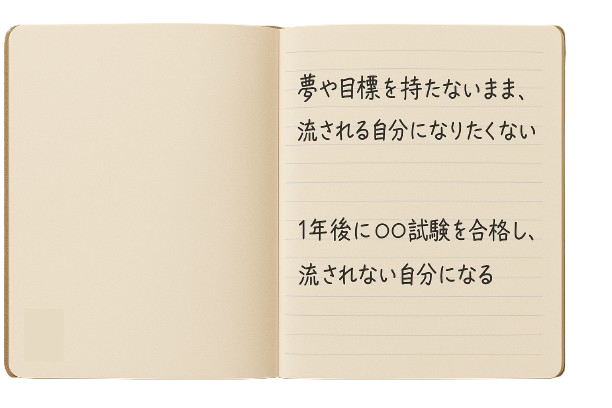 夢や目標を持たないまま、
流される自分になりたくない
1年後に〇〇試験を合格し、
流されない自分になる